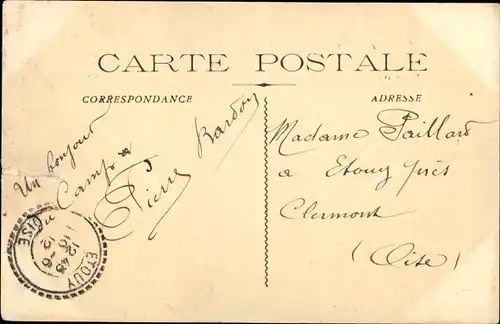 CARTE POSTALE
CORRESPONDANCE
ADRESSE
Un bonjour
du Camp
Pierre Bardou
Madame Paillard
a Etouy près
Clermont
(Oise)
ETOUY
OISE
12 45
16 - 6
12